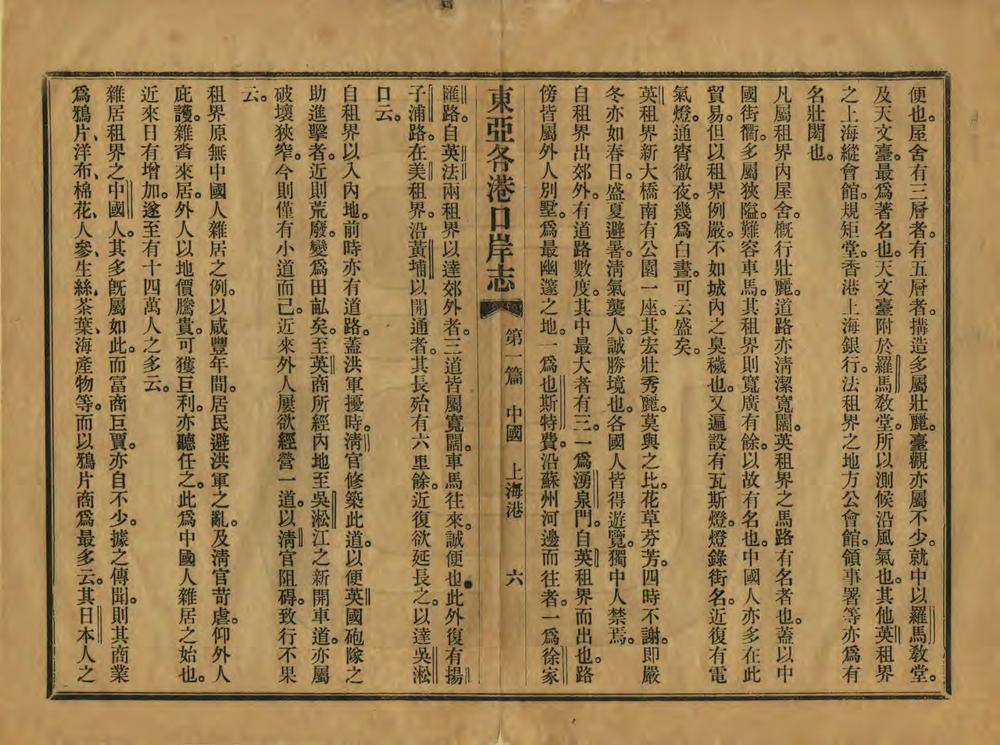 便也。屋舍有三層者。有五層者。搆造多屬壯麗。臺觀亦屬不少。就中以羅馬敎堂。
及天文臺。最爲著名也。天文臺附於羅馬敎堂。所以測候沿風氣也。其他英租界
之上海縱會館。規矩堂。香港上海銀行。法租界之地方公會館。領事署等。亦爲有
名壯閎也。
凡屬租界內屋舍。慨行壯麗。道路亦淸潔寬闊。英租界之馬路有名者也。蓋以中
國街衢。多屬狹隘。難容車馬。其租界則寬廣有餘。以故有名也。中國人亦多在此
貿易。但以租界例嚴。不如城內之臭穢也。又遍設有瓦斯燈。燈錄街名。近復有電
氣燈。通宵徹夜。幾爲白晝。可云盛矣。
英租界新大橋南有公園一座。其宏壯秀麗。莫與之比。花草芬芳。四時不謝。即嚴
冬亦如春日。盛夏避暑。淸氣襲人。誠勝境也。各國人皆得遊覽。獨中人禁焉。
自租界出郊外。有道路數度。其中最大者有三。一爲湧泉門。自英租界而出也。路
傍皆屬外人別墅。爲最幽邃之地。一爲也斯特費。沿蘇州河邊而往者。一爲徐家
東亞各港口岸志 第一篇 中國 上海港 六
匯路。自英法兩租界以達郊外者。三道皆屬寬闊。車馬往來。誠便也。此外復有揚
子浦路。在美租界。沿黃埔以開通者。其長殆有六里餘。近復欲延長之。以達吳淞
口云。
自租界以入內地。前時亦有道路。蓋洪軍擾時。淸官修築此道。以便英國砲隊之
助進擊者。近則荒廢。變爲田畝矣。至英商所經內地至吳淞江之新開車道。亦屬
破壞狹窄。今則僅有小道而已。近來外人屢欲經營一道。以淸官阻碍。致行不果
云。
租界原無中國人雜居之例。以咸豐年間。居民避洪軍之亂。及淸官苛虐。仰外人
庇護。雜沓來居。外人以地價騰貴。可獲巨利。亦聽任之。此爲中國人雜居之始也。
近來日有增加。遂至有十四萬人之多云。
雜居租界之中國人。其多旣屬如此。而富商巨賈。亦自不少。據之傳聞。則其商業
爲鴉片、洋布、棉花、人參、生絲、茶葉、海產物等。而以鴉片商爲最多云。其日本人之